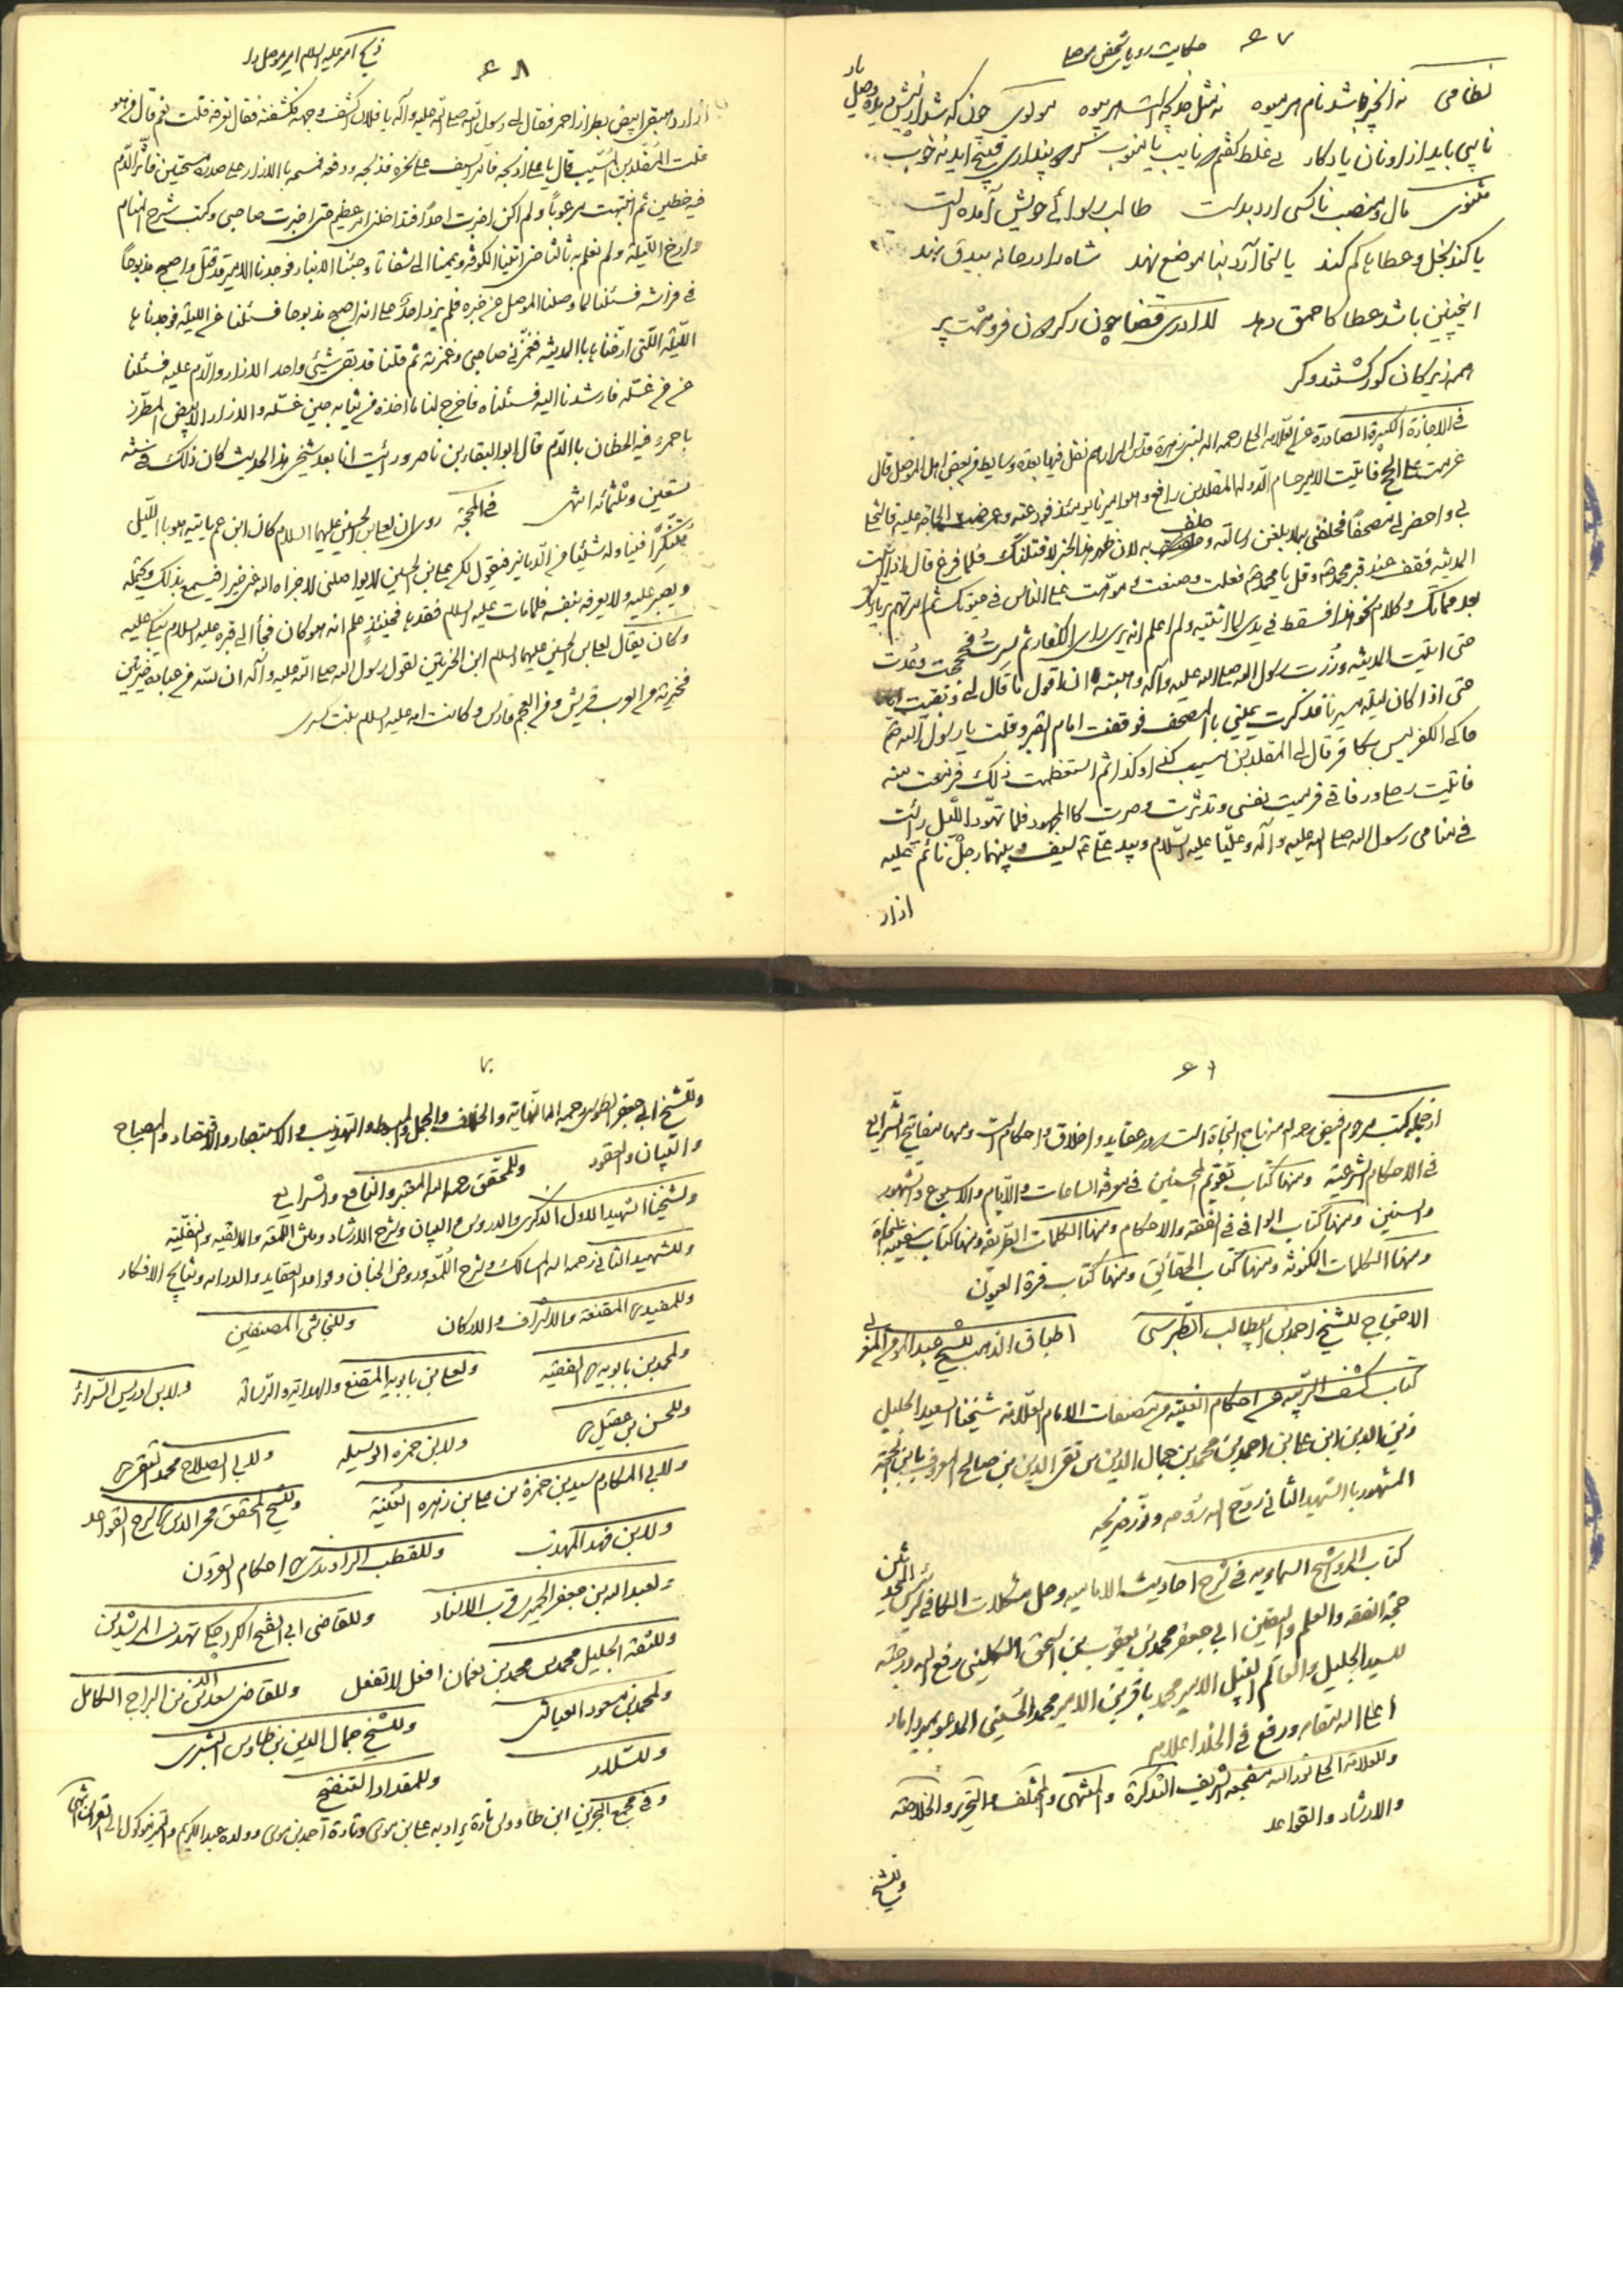 ۶۷ حکایت رویای شخص موصلی
نظامی نه انجیر باشد نام هر میوه نه مثل زبیده است هر بیوه مولوی چون که شد از پیش دیده وصل یار
نایبی باید ازو مان یادگار نی غلط گفتم که نایب با منوب گر دو پنداری قبیح آید نه خوب
مثنوی مال و منصب ناکسی کارد بدست طالب رسوائی خویش آمده است
یا کند بخل و عطاها کم کند یا سخا آرد بنا موضع نهد شاه را در خانه بیدق نهد
اینچنین باشد عطا کاحمق دهد لمادری قضا چون کرد گون فروهشت پر
همه زیرکان کور گشتند و کر
فی الاجازة الکبیرة الصادرة عن العلامة الحلی رحمه الله لبنی زهرة قدس اسرارهم نقل فیها بعدة وسایط عن بعض اهل الموصل قال
عزمت علی الحج فاتیت الامیر حسام الدولة المقلد بن رافع وهو امیرنا یومئذ فودعته وعرضت الحاجة علیه فاستخلا
بی واحضر لی مصحفا فحلفنی به لابلغن رسالته وحلف به لان ظهر هذا الخبر لاقتلنک فلما فرغ قال اذا اتیت
المدینة فقف عند قبر محمد ص وقل یا محمد ص فعلت وصنعت وموّهت علی الناس فی حیوتک ثم امرتهم بزیارتک
بعد مماتک وکلام نحو هذا فسقط فی یدی لما اتیته ولم اعلم انه یری رای الکفار ثم سرت فحججت وعدت
حتی اتیت المدینة وزرت رسول الله صلی الله علیه وآله وهبته ان اقول ما قال لی وبقیت ایاما
حتی اذا کان لیلة مسیرنا فذکرت یمینی بالمصحف فوقفت امام القبر وقلت یا رسول الله ص
حاکی الکفر لیس بکافر قال لی المقلد بن مسیب کذا وکذا ثم استعظمت ذلک فزعت منه
فاتیت رحلی ورفاقی فرمیت بنفسی وتدثرت وصرت کالمجهود فلما تهور اللیل رأیت
فی منامی رسول الله صلی الله علیه وآله وعلیا علیه السلام وبید علی ع سیف وبینهما رجل نائم علیه
ازار
۶۸ ذبح امیر علیه السلام امیر موصل را
ازار دبیقی ابیض بطراز احمر فقال لی رسول الله صلی الله علیه وآله یا فلان اکشف وجهه فکشفته فقال تعرفه قلت نعم قال من هو
قلت المقلد بن المسیب قال یا علی اذبحه فامر السیف علی نحره فذبحه ورفعه فمسحه بالازار علی صدره مسحتین فاثر الدم
فیه خطین ثم انتبهت مرعوبا ولم اکن اخبرت احدا فتداخلنی امر عظیم حتی اخبرت صاحبی وکتبت شرح المنام
وارخ اللیلة ولم نعلم به ثالثا حتی اتینا الکوفة ویممنا الی شفاتا وجئنا الانبار فوجدنا الامیر قد قتل واصبح مذبوحا
فی فراشه فسئلنا لما وصلنا الموصل عن خبره فلم یزد احد علی انه اصبح مذبوحا فسئلنا عن اللیلة فوجدناها
اللیلة التی ارخناها بالمدینة فغمزنی صاحبی وغمزته ثم قلنا قد بقی شیئی واحد الازار والدم علیه فسئلنا
عن من غسله فارشدنا الیه فسئلناه فاخرج لنا ما اخذه من ثیابه حین غسله والازار الابیض المطرز
باحمر وفیه الخطان بالدم قال ابو البقاء بن ناصر ورأیت انا بعد شیخی هذا الحدیث کان ذلک فی سنة
تسعین وثلثمائه انتهی فی المحجة روی ان لعلی بن الحسین علیهما السلام کان ابن عم یأتیه هو باللیل
متنکرا فینا وله شیئا من الدنانیر فیقول لکن علی بن الحسین لا یواصلنی لا جزاه الله عنی خیرا فیسمع بذلک ویحتمله
ویصبر علیه ولا یعرفه بنفسه فلما مات علیه السلام فقدها فحینئذ علم انه هو کان فجاء الی قبره علیه السلام یبکی علیه
وکان یقال لعلی بن الحسین علیهما السلام ابن الخیرتین لقول رسول الله صلی الله علیه وآله ان لله من عباده خیرتین
فخیرته من العرب قریش ومن العجم فارس وکانت امه علیه السلام بنت کسری
۶۹
از جمله کتب مرحوم فیض رحمه الله منهاج النجاة است در عقاید و اخلاق و احکام است ومنها مفاتیح الشرایع
فی الاحکام الشرعیة ومنها کتاب تقویم المحسنین فی معرفة الساعات والایام والاسبوع والشهور
والسنین ومنها کتاب الوافی فی الفقه والاحکام ومنها الکلمات الطریفة ومنها کتاب سفینة النجاة
ومنها الکلمات المکنونة ومنها کتاب الحقائق ومنها کتاب قرة العیون
الاحتجاج للشیخ احمد بن ابیطالب الطبرسی اطباق الذهب للشیخ عبد المؤمن المغربی
کتاب کشف الریبة من احکام الغیبة من مصنفات الامام العلامة شیخنا السعید الجلیل
زین الدین ابن علی بن احمد بن محمد بن جمال الدین بن تقی الدین بن صالح المعروف بابن الحجة
المشهور بالشهید الثانی روح الله روحه ونور ضریحه
کتاب الرواشح السماویه فی شرح احادیث الامامیه وحل مشکلات الکافی لرئیس المحدثین
حجة الفقه والعلم والیقین ابی جعفر محمد بن یعقوب بن اسحق الکلینی رفع الله درجته
للسید الجلیل والعالم النبیل الامیر محمد باقر بن الامیر محمد الحسینی المدعو بمیرداماد
اعلی الله مقامه ورفع فی الخلد اعلامه
وللعلامة الحلی نور الله مضجعه الشریف التذکرة والمنتهی والمختلف والتحریر والخلاصة
والارشاد والقواعد
وللشیخ
۷۰
وللشیخ ابی جعفر الطوسی رحمه الله النهایة والخلاف والجمل والمبسوط والتهذیب والاستبصار والاقتصاد والمصباح
والتبیان والعقود وللمحقق رحمه الله المعتبر والنافع والشرایع
ولشیخنا الشهید الاول الذکری والدروس والبیان وشرح الارشاد ومتن اللمعة والالفیة والنفلیة
وللشهید الثانی رحمه الله المسالک وشرح اللمعه وروض الجنان وقواعد العقاید والدرایه ونتایج الافکار
وللمفید ره المقنعة والاشراف والارکان وللنجاشی المصنفین
ولمحمد بن بابویه ره الفقیه ولعلی بن بابویه المقنع والهدایة والرسالة ولابن ادریس السرائر
وللحسن بن عقیل ره ولابن حمزه الوسیله ولابی الصلاح محمد التقی ره
ولابی المکارم سید بن حمزة بن علی بن زهره الغنیة وللشیخ المحقق فخر الدین ره شرح القواعد
ولابن فهد المهذب وللقطب الراوندی ره احکام القرآن
ولعبد الله بن جعفر الحمیری قرب الاسناد وللقاضی ابی الفتح الکراجکی تهذیب المسترشدین
وللثقة الجلیل محمد بن محمد بن نعمان افعل لا تفعل وللقاضی سعد الدین بن البراج الکامل
ولمحمد بن مسعود العیاشی وللشیخ جمال الدین بن طاوس البشری
وللسلار وللمقداد التنقیح
وفی مجمع البحرین ابن طاووس تارة یراد به علی بن موسی وتارة احمد بن موسی وولده عبد الکریم والتمیز موکول الی القرائن انتهی